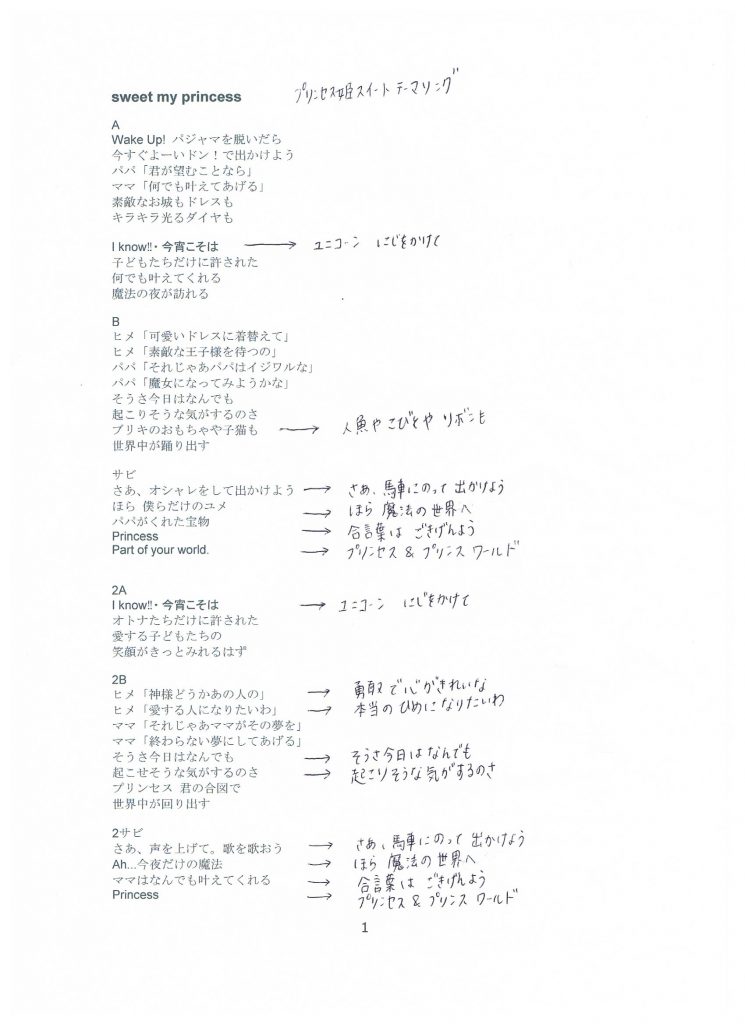 sweet my princess プリンセス姫スイート テーマソング
A
Wake Up! パジャマを脱いだら
今すぐよーいドン！で出かけよう
パパ「君が望むことなら」
ママ「何でも叶えてあげる」
素敵なお城もドレスも
キラキラ光るダイヤも
I know!!・今宵こそは → ユニコーン にじをかけて
子どもたちだけに許された
何でも叶えてくれる
魔法の夜が訪れる
B
ヒメ「可愛いドレスに着替えて」
ヒメ「素敵な王子様を待つの」
パパ「それじゃあパパはイジワルな」
パパ「魔女になってみようかな」
そうさ今日はなんでも
起こりそうな気がするのさ
ブリキのおもちゃや子猫も → 人魚や こびとや リボンも
世界中が踊り出す
サビ
さあ、オシャレをして出かけよう → さあ、馬車にのって 出かけよう
ほら 僕らだけのユメ → ほら 魔法の世界へ
パパがくれた宝物 → 合言葉は ごきげんよう
Princess
Part of your world. → プリンセス & プリンス ワールド
2A
I know!!・今宵こそは → ユニコーン にじをかけて
オトナたちだけに許された
愛する子どもたちの
笑顔がきっとみれるはず
2B
ヒメ「神様どうかあの人の」 → 勇敢で心がきれいな
ヒメ「愛する人になりたいわ」 → 本当のひめになりたいわ
ママ「それじゃあママがその夢を」
ママ「終わらない夢にしてあげる」
そうさ今日はなんでも → そうさ今日はなんでも
起こせそうな気がするのさ → 起こりそうな気がするのさ
プリンセス 君の合図で
世界中が回り出す
2サビ
さあ、声を上げて。歌を歌おう → さあ、馬車にのって 出かけよう
Ah...今夜だけの魔法 → ほら 魔法の世界へ
ママはなんでも叶えてくれる → 合言葉は ごきげんよう
Princess → プリンセス & プリンス ワールド
1